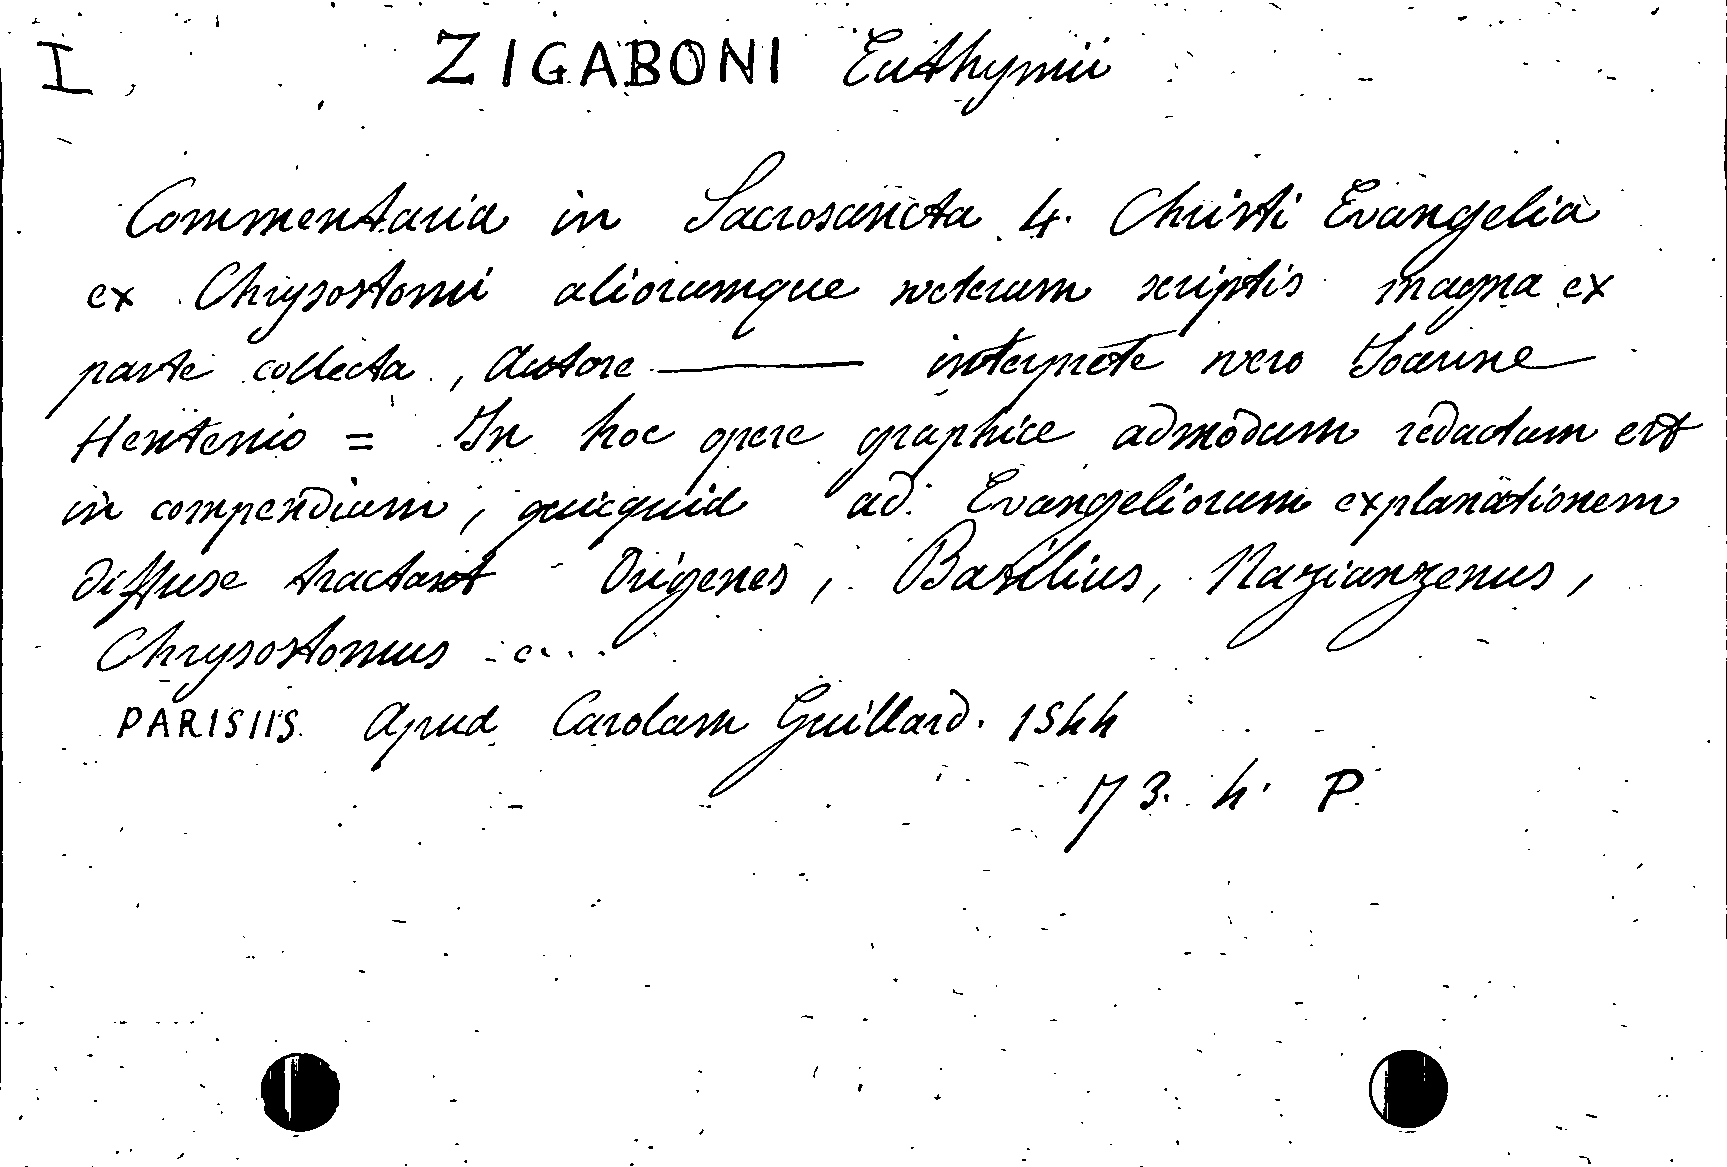 I ZIGABONI Euthymii
Commentaria in Sacrosancta 4. Christi Evangelia
ex Chrysostomi aliorumque veterum scriptis magna ex
parte collecta, Autore ——— interprete vero Ioanne
Hentenio = In hoc opere graphice admodum redactum est
in compendium, quicquid ad Evangeliorum explanationem
diffuse tractant Origenes, Basilius, Nazianzenus,
Chrysostomus ....
PARISIIS Apud Carolam Guillard. 1544
173. h. P.